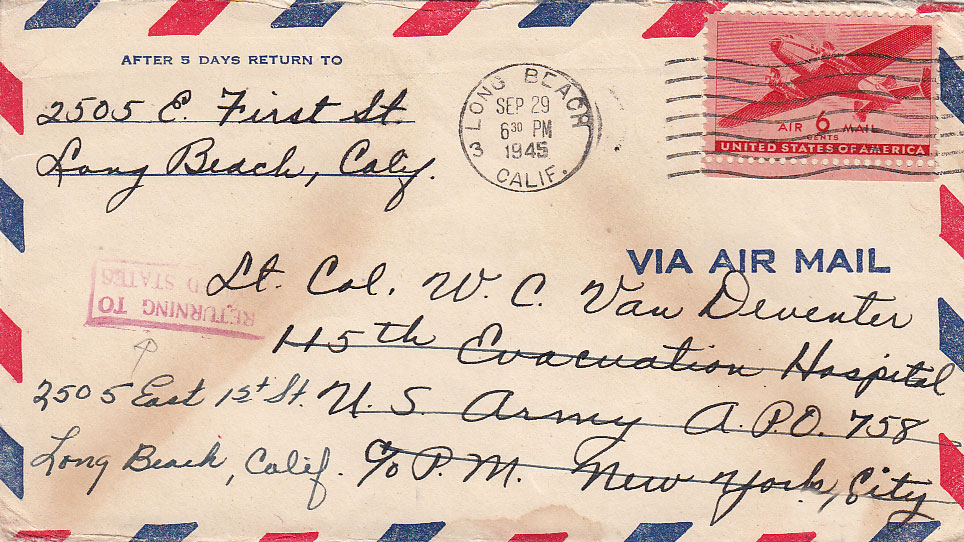 AFTER 5 DAYS RETURN TO
2505 E. First St.
Long Beach, Calif.
LONG BEACH
SEP 29
6 30 PM
1945
3
CALIF.
AIR 6 MAIL
CENTS
UNITED STATES OF AMERICA
VIA AIR MAIL
RETURNING TO
D STATES
Lt. Col. W. C. Van Deventer
115th Evacuation Hospital
U. S. Army A.P.O. 758
c/o P.M. New York, City
2505 East 1st St.
Long Beach, Calif.